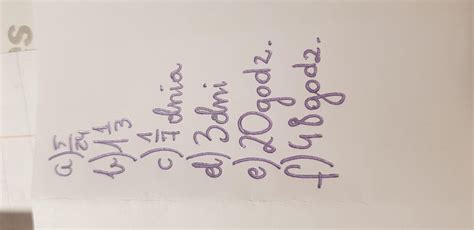 a) 5/24
b) 1 1/3
c) 1/7 dnia
d) 3 dni
e) 20 godz.
f) 48 godz.